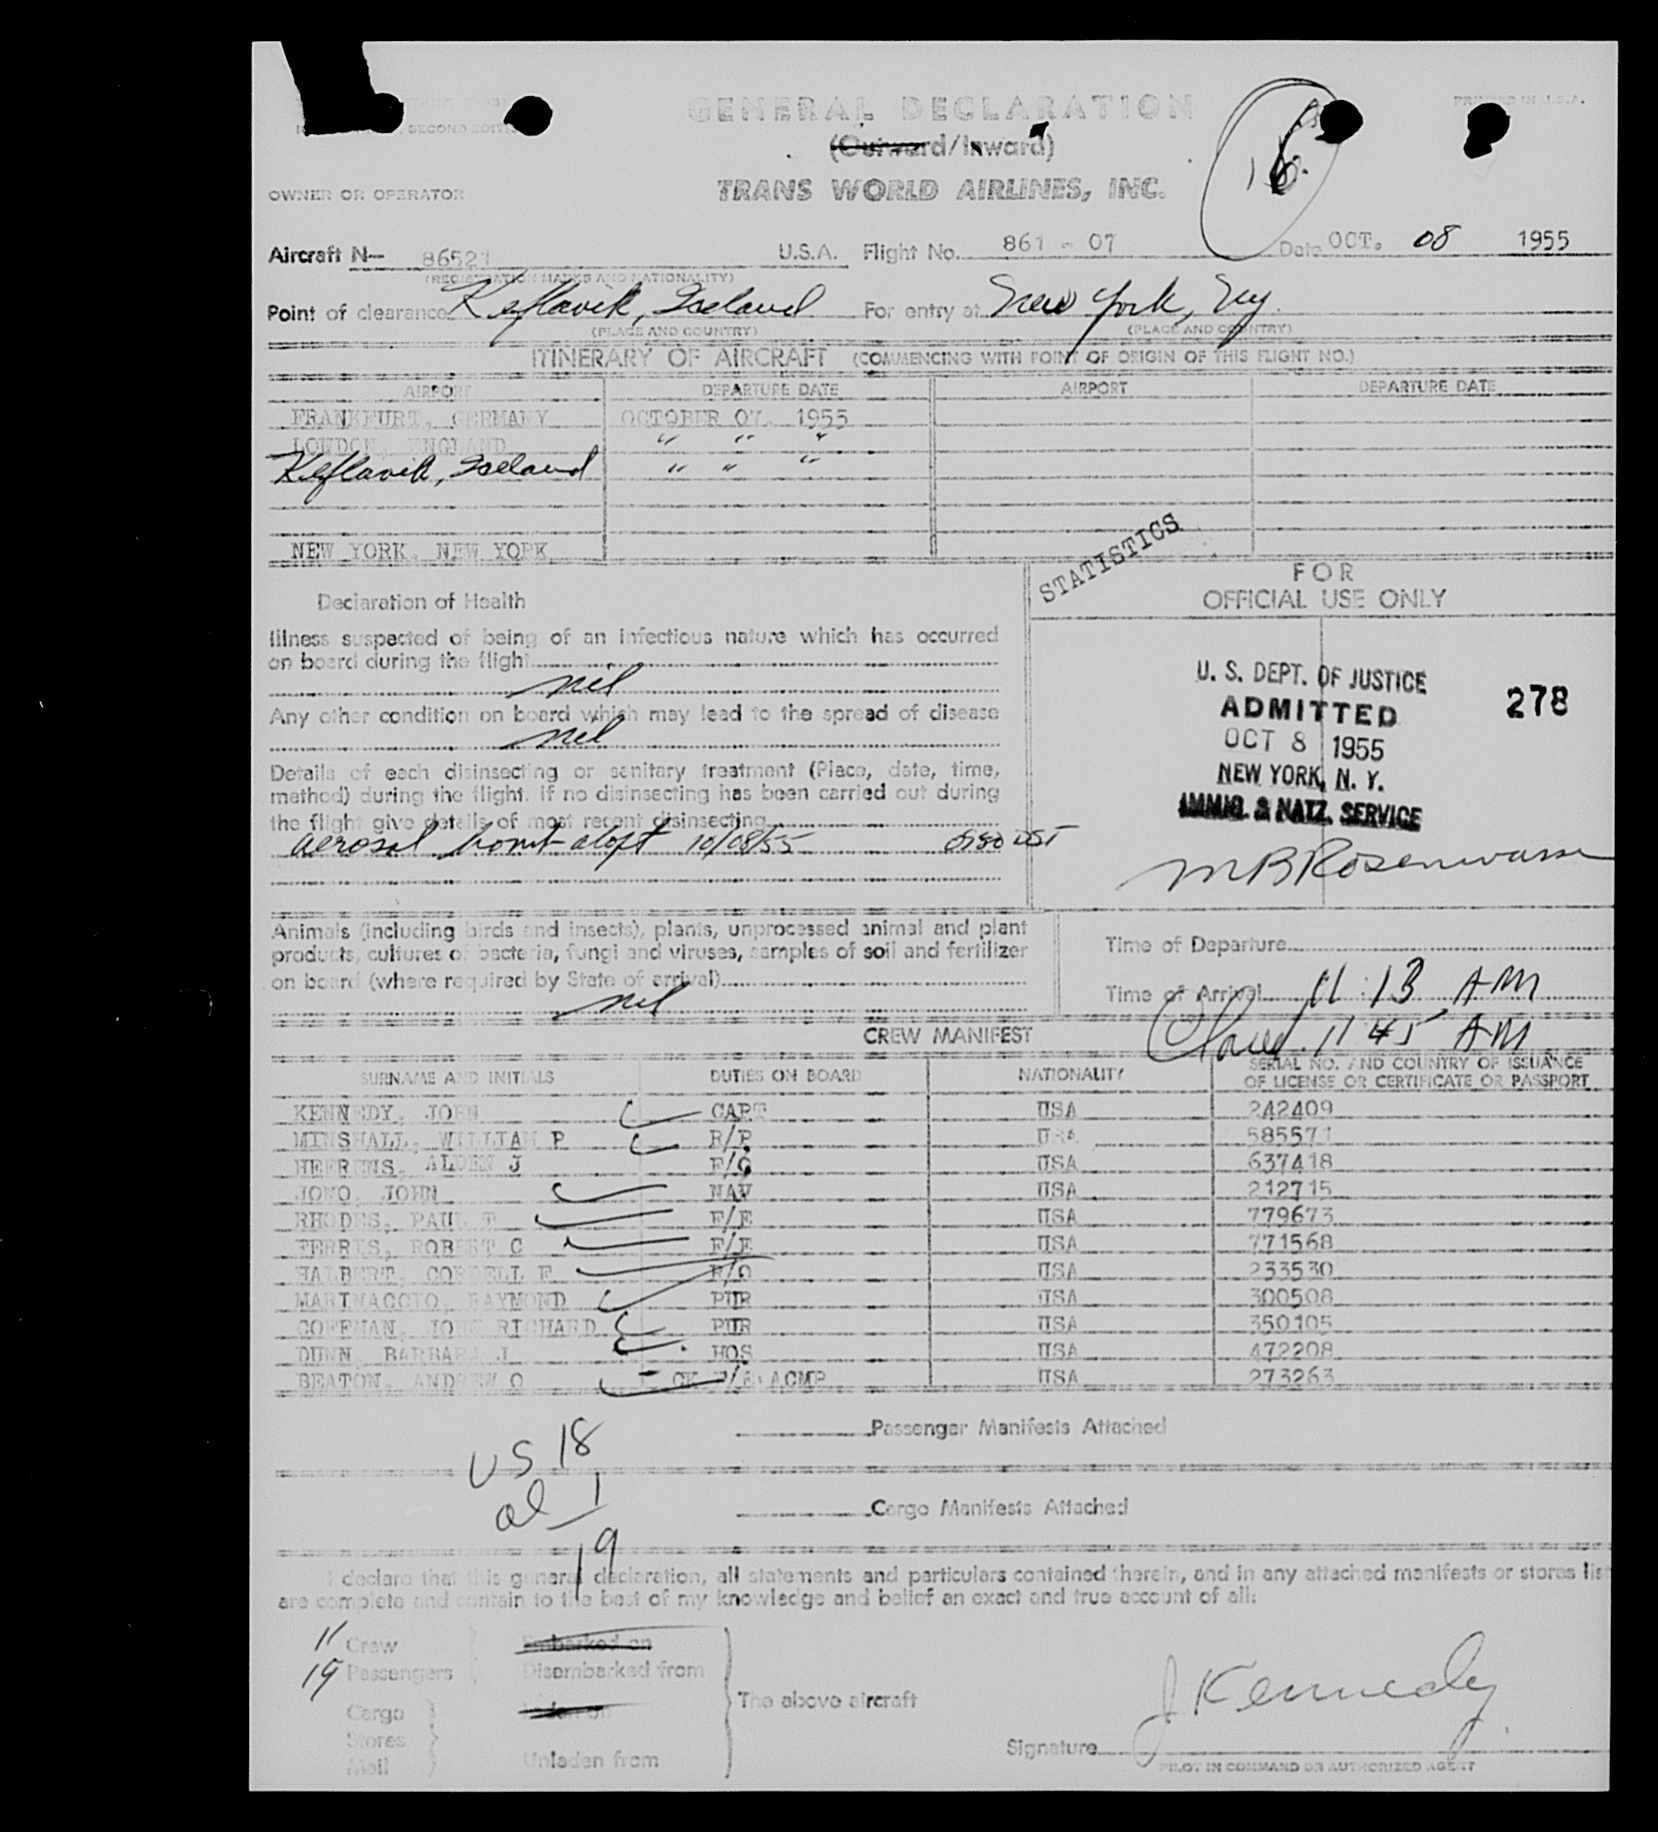 SECOND EDITION
GENERAL DECLARATION
PRINTED IN U.S.A.
(Outward/Inward)
16
OWNER OR OPERATOR
TRANS WORLD AIRLINES, INC.
Aircraft N— 86521 U.S.A. Flight No. 861 - 07 Date OCT. 08 1955
(REGISTRATION MARKS AND NATIONALITY)
Point of clearance Keflavik, Iceland For entry at New York, Ny.
(PLACE AND COUNTRY) (PLACE AND COUNTRY)
ITINERARY OF AIRCRAFT (COMMENCING WITH POINT OF ORIGIN OF THIS FLIGHT NO.)
AIRPORT DEPARTURE DATE AIRPORT DEPARTURE DATE
FRANKFURT, GERMANY OCTOBER 07, 1955
LONDON, ENGLAND " " "
Keflavik, Iceland " " "
NEW YORK, NEW YORK
STATISTICS
FOR
OFFICIAL USE ONLY
Declaration of Health
Illness suspected of being of an infectious nature which has occurred
on board during the flight
nil
Any other condition on board which may lead to the spread of disease
nil
Details of each disinsecting or sanitary treatment (Place, date, time,
method) during the flight. If no disinsecting has been carried out during
the flight give details of most recent disinsecting
aerosol bomb aloft 10/08/55
U. S. DEPT. OF JUSTICE
ADMITTED 278
OCT 8 1955
NEW YORK, N. Y.
IMMIG. & NATZ. SERVICE
Animals (including birds and insects), plants, unprocessed animal and plant
products, cultures of bacteria, fungi and viruses, samples of soil and fertilizer
on board (where required by State of arrival)
nil
Time of Departure
Time of Arrival 11:13 AM
11 45 AM
CREW MANIFEST
SURNAME AND INITIALS DUTIES ON BOARD NATIONALITY SERIAL NO. AND COUNTRY OF ISSUANCE
OF LICENSE OR CERTIFICATE OR PASSPORT
KENNEDY, JOHN CAPT USA 242409
MINSHALL, WILLIAM P R/P USA 585571
ALDEN J F/O USA 637418
JOHN NAV USA 212715
RHODES, PAUL F/E USA 779673
FERRIS, ROBERT C F/E USA 771568
HALBERT, CORDELL F R/O USA 233530
MARINACCIO, RAYMOND PUR USA 300508
COFFMAN, JOHN RICHARD PUR USA 350105
DUNN, BARBARA J HOS USA 472208
BEATON, ANDREW O ACMP USA 273263
Passenger Manifests Attached
US 18
al 1
19
Cargo Manifests Attached
I declare that this general declaration, all statements and particulars contained therein, and in any attached manifests or stores list
are complete and contain to the best of my knowledge and belief an exact and true account of all:
11 Crew Embarked on
19 Passengers Disembarked from
The above aircraft
Cargo
Stores
Mail Unladen from
J Kennedy
Signature
PILOT IN COMMAND OR AUTHORIZED AGENT